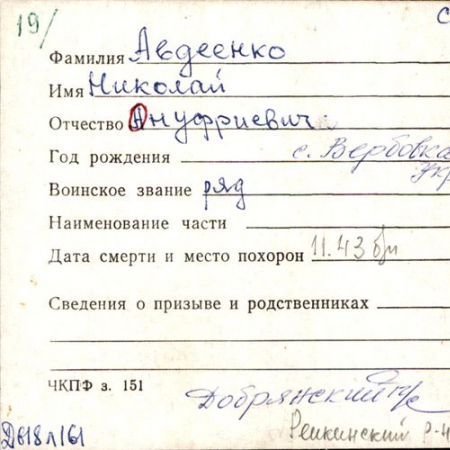 19/ С
Фамилия Авдеенко
Имя Николай
Отчество Ануфриевич
Год рождения с. Вербовка
Укр
Воинское звание ряд
Наименование части
Дата смерти и место похорон 11.43 б/м
Сведения о призыве и родственниках
ЧКПФ з. 151
Добрянский
Д618л161 Р-н